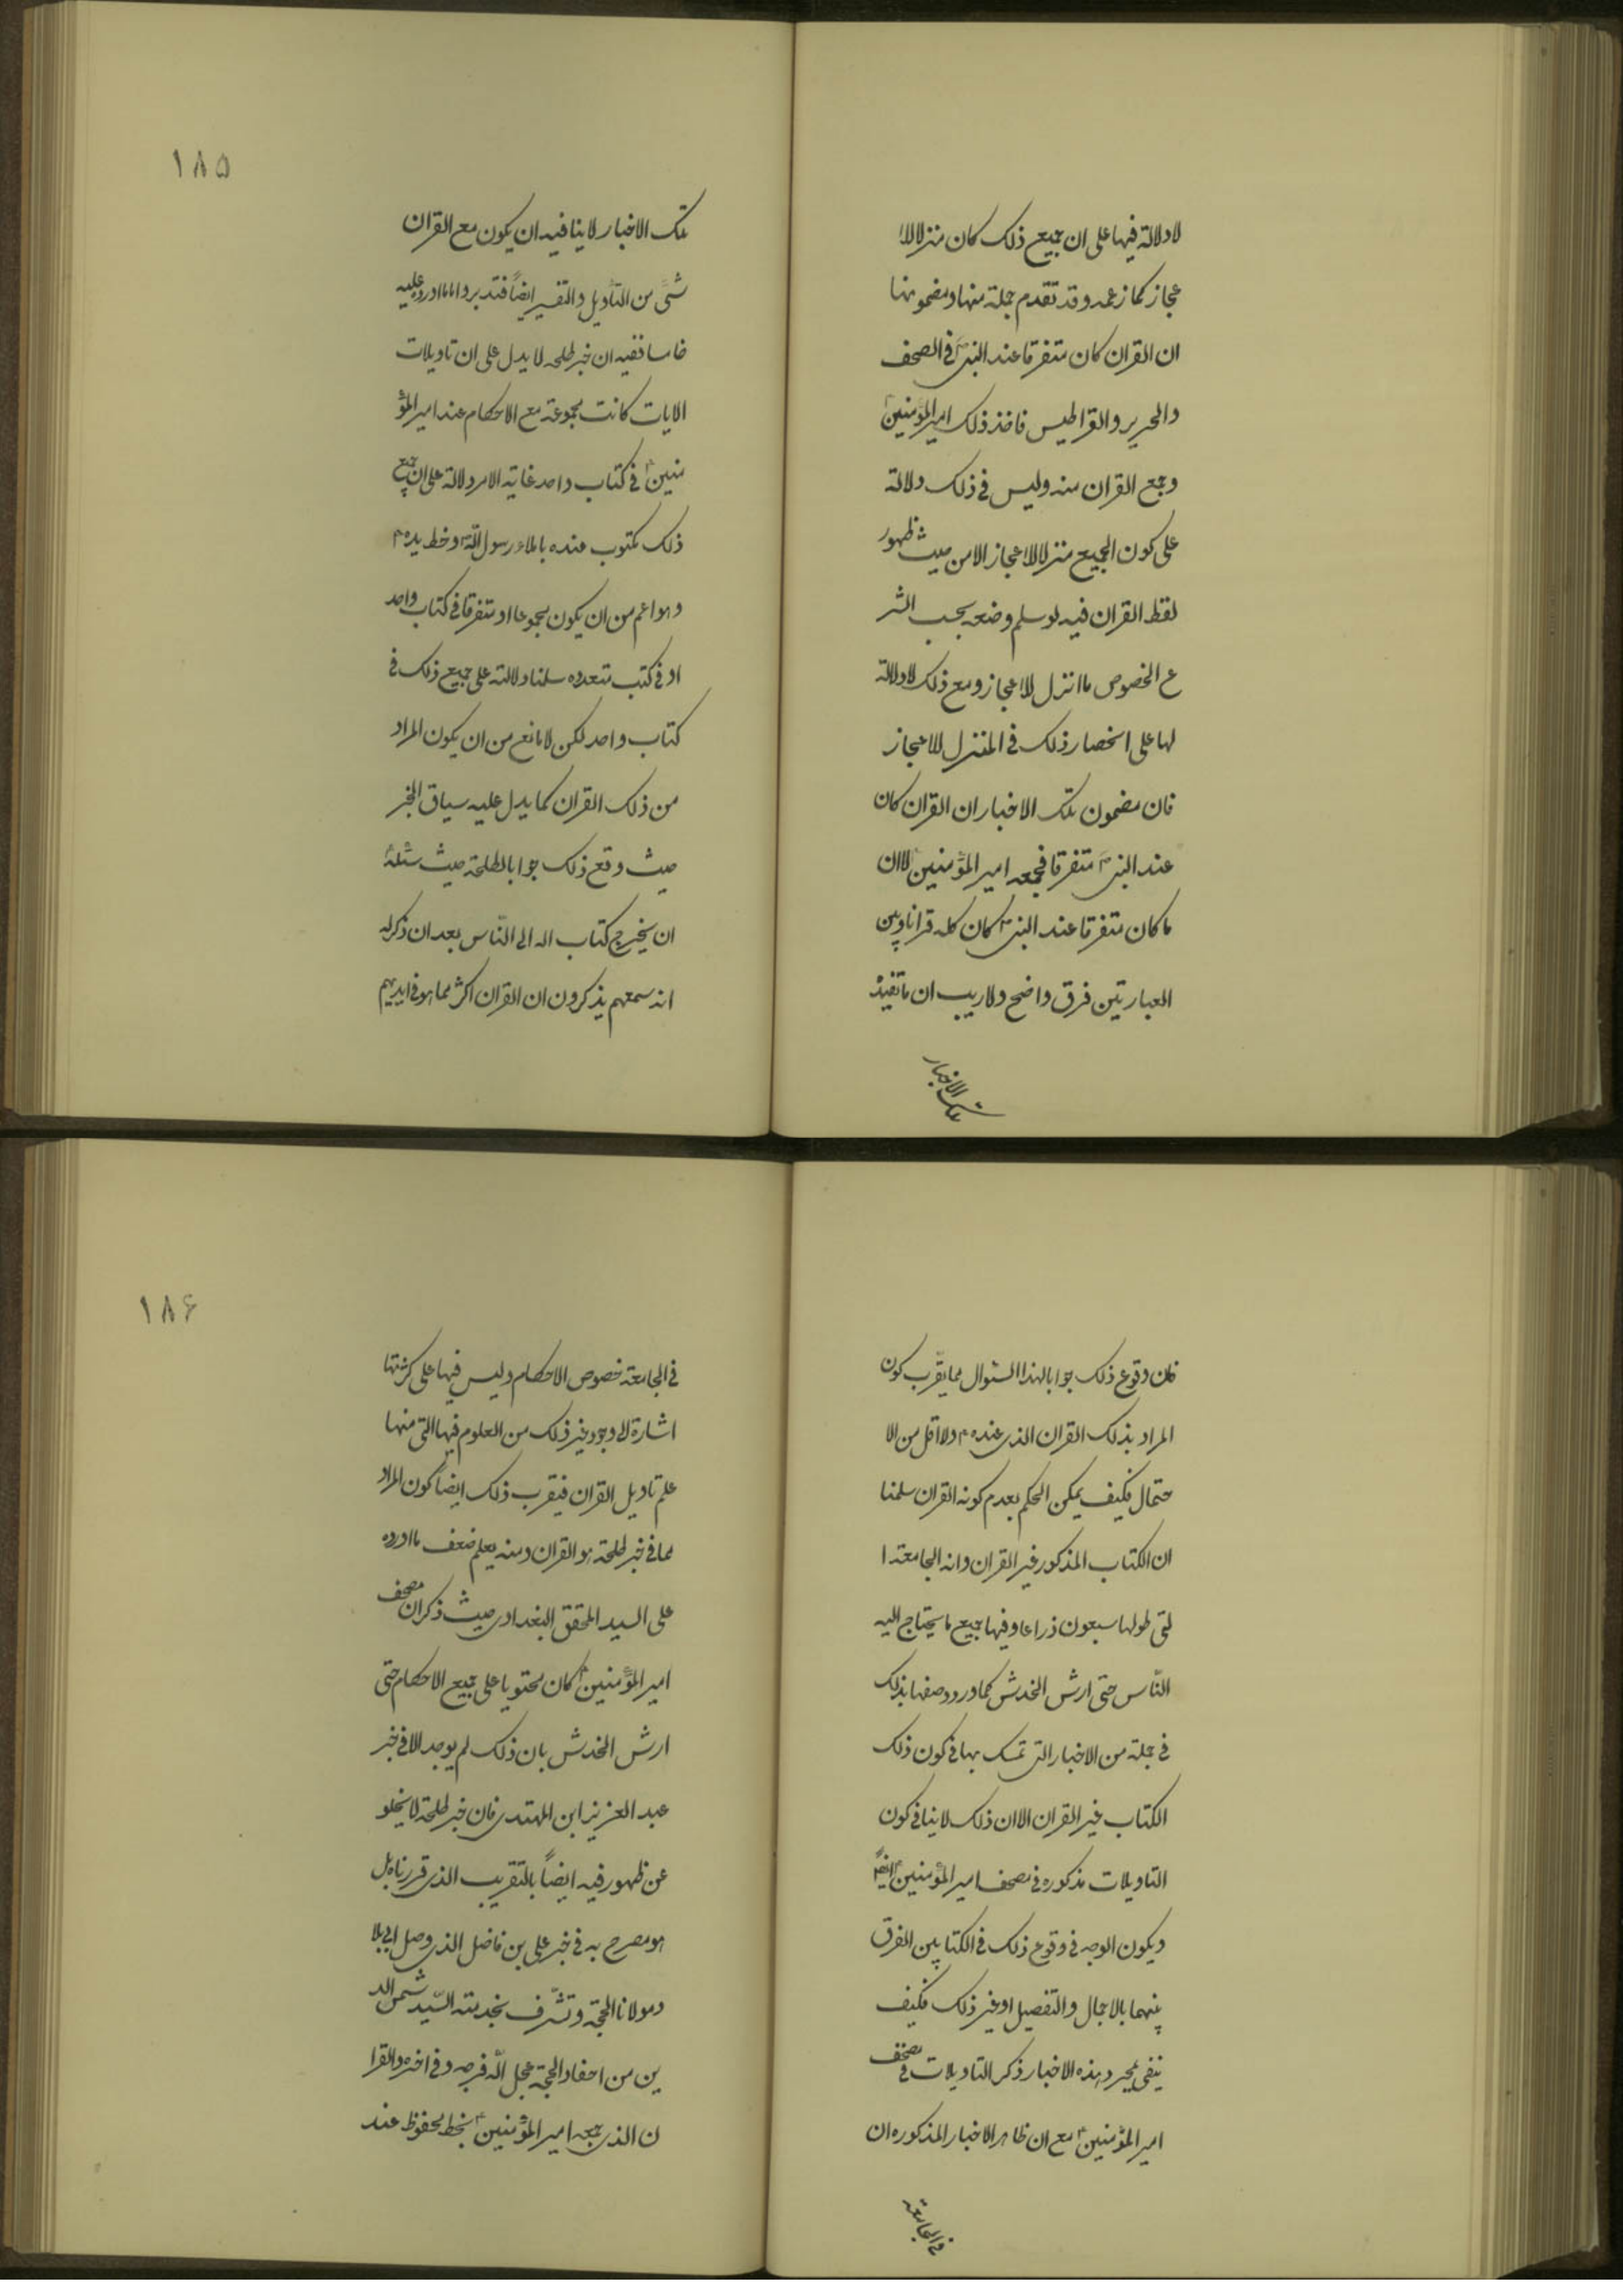 لا دلالة فيها على ان جميع ذلك كان منزلا للا
عجاز كما زعمه وقد تقدم جملة منها ومضمونها
ان القران كان متفرقا عند النبى ص فى الصحف
والحرير والقراطيس فاخذ ذلك امير المؤمنين ع
وجمع القران منه وليس فى ذلك دلالة
على كون الجميع منزلا للاعجاز الا من حيث ظهور
لفظ القران فيه لو سلم وضعه بحسب الشر
ع الخصوص ما انزل للاعجاز ومع ذلك لا دلالة
لها على انحصار ذلك فى المنزل للاعجاز
فان مضمون تلك الاخبار ان القران كان
عند النبى ص متفرقا فجمعه امير المؤمنين ع لا ان
ما كان متفرقا عند النبى ص كان كله قرانا وبين
العبارتين فرق واضح ولا ريب ان ما تفيده
تلك الاخبار
١٨٥
تلك الاخبار لا ينافيه ان يكون مع القران
شئ من التأويل والتفسير ايضاً فتدبر واما ما اورده عليه
خامسا ففيه ان خبر طلحه لا يدل على ان تاويلات
الايات كانت مجموعة مع الاحكام عند امير المؤ
منين ع فى كتاب واحد غاية الامر دلالة على ان جميع
ذلك مكتوب عنده باملاء رسول الله ص وخط يده ع
وهو اعم من ان يكون مجموعا او متفرقا فى كتاب واحد
او فى كتب متعدده سلمنا دلالته على جميع ذلك فى
كتاب واحد لكن لا مانع من ان يكون المراد
من ذلك القران كما يدل عليه سياق الخبر
حيث وقع ذلك جوابا لطلحة حيث سئله
ان يخرج كتاب الله الى الناس بعد ان ذكر له
انه سمعهم يذكرون ان القران اكثر مما هو فى ايديهم
فان وقوع ذلك جوابا لهذا السئوال مما يقرب كون
المراد بذلك القران الذى عنده ع ولا اقل من الا
حتمال فكيف يمكن الحكم بعدم كونه القران سلمنا
ان الكتاب المذكور غير القران وانه الجامعة ا
لتى طولها سبعون ذراعا وفيها جميع ما يحتاج اليه
الناس حتى ارش الخدش كما ورد وصفها بذلك
فى جملة من الاخبار التى تمسك بها فى كون ذلك
الكتاب غير القران الا ان ذلك لا ينافى كون
التاويلات مذكوره فى مصحف امير المؤمنين ع ايضاً
ويكون الوجه فى وقوع ذلك فى الكتابين الفرق
بينهما بالاجمال والتفصيل او غير ذلك فكيف
ينفى بمجرد هذه الاخبار ذكر التاويلات فى مصحف
امير المؤمنين ع مع ان ظاهر الاخبار المذكوره ان
فى الجامعة
١٨۶
فى الجامعة خصوص الاحكام وليس فيها على كثرتها
اشارة الى وجود غير ذلك من العلوم فيها التى منها
علم تاويل القران فيقرب ذلك ايضاً كون المراد
مما فى خبر طلحة هو القران ومنه يعلم ضعف ما اورده
على السيد المحقق البغدادى حيث ذكر ان مصحف
امير المؤمنين ع كان محتويا على جميع الاحكام حتى
ارش الخدش بان ذلك لم يوجد الا فى خبر
عبد العزيز ابن المهتدى فان خبر طلحة لا يخلو
عن ظهور فيه ايضاً بالتقريب الذى قررناه بل
هو مصرح به فى خبر على بن فاضل الذى وصل الى بلا
د مولانا الحجة وتشرف بخدمته السيد شمس الد
ين من احفاد الحجة عجل الله فرجه وفى اخره والقرا
ن الذى جمعه امير المؤمنين ع بخطه محفوظ عند